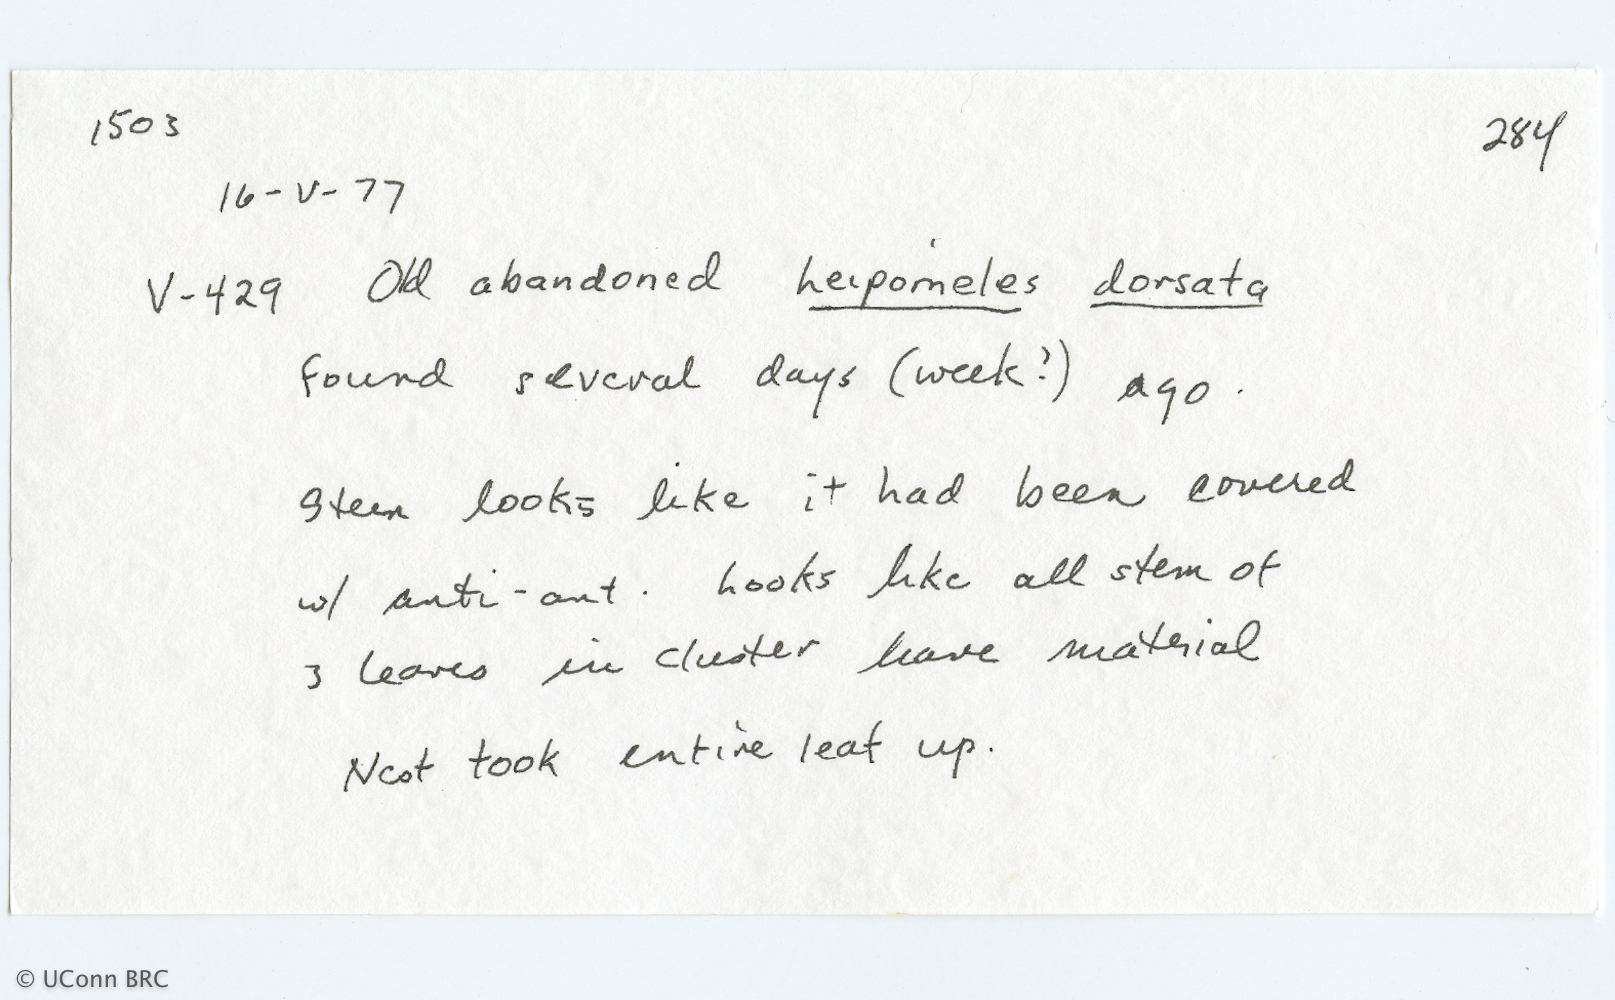 1503 284
16-V-77
V-429 Old abandoned leipomeles dorsata
found several days (week?) ago.
Stem looks like it had been covered
w/ anti-ant. Looks like all stem of
3 leaves in cluster have material
took entire leaf up.
© UConn BRC